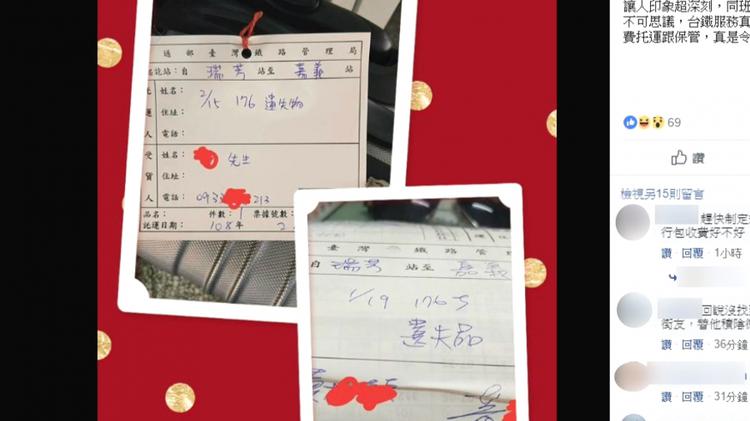 通部臺灣鐵路管理局
自 瑞芳 站至 嘉義 站
姓名：
2/15 176 遺失物
住址：
人 電話：
受 姓名： 先生
貨 住址：
人 電話： 0933 213
品名： 件數：1 票據號數
託運日期： 108年 2
臺灣鐵路管理
自 瑞芳 站至 嘉義
1/19 176次
遺失品
讓人印象超深刻，同班
不可思議，台鐵服務真
費托運跟保管，真是令
69
讚
檢視另15則留言
趕快制定
行包收費好不好
讚 · 回覆 · 1小時
回說沒找
街友，替他積陰
讚 · 回覆 · 36分鐘
讚 · 回覆 · 31分鐘